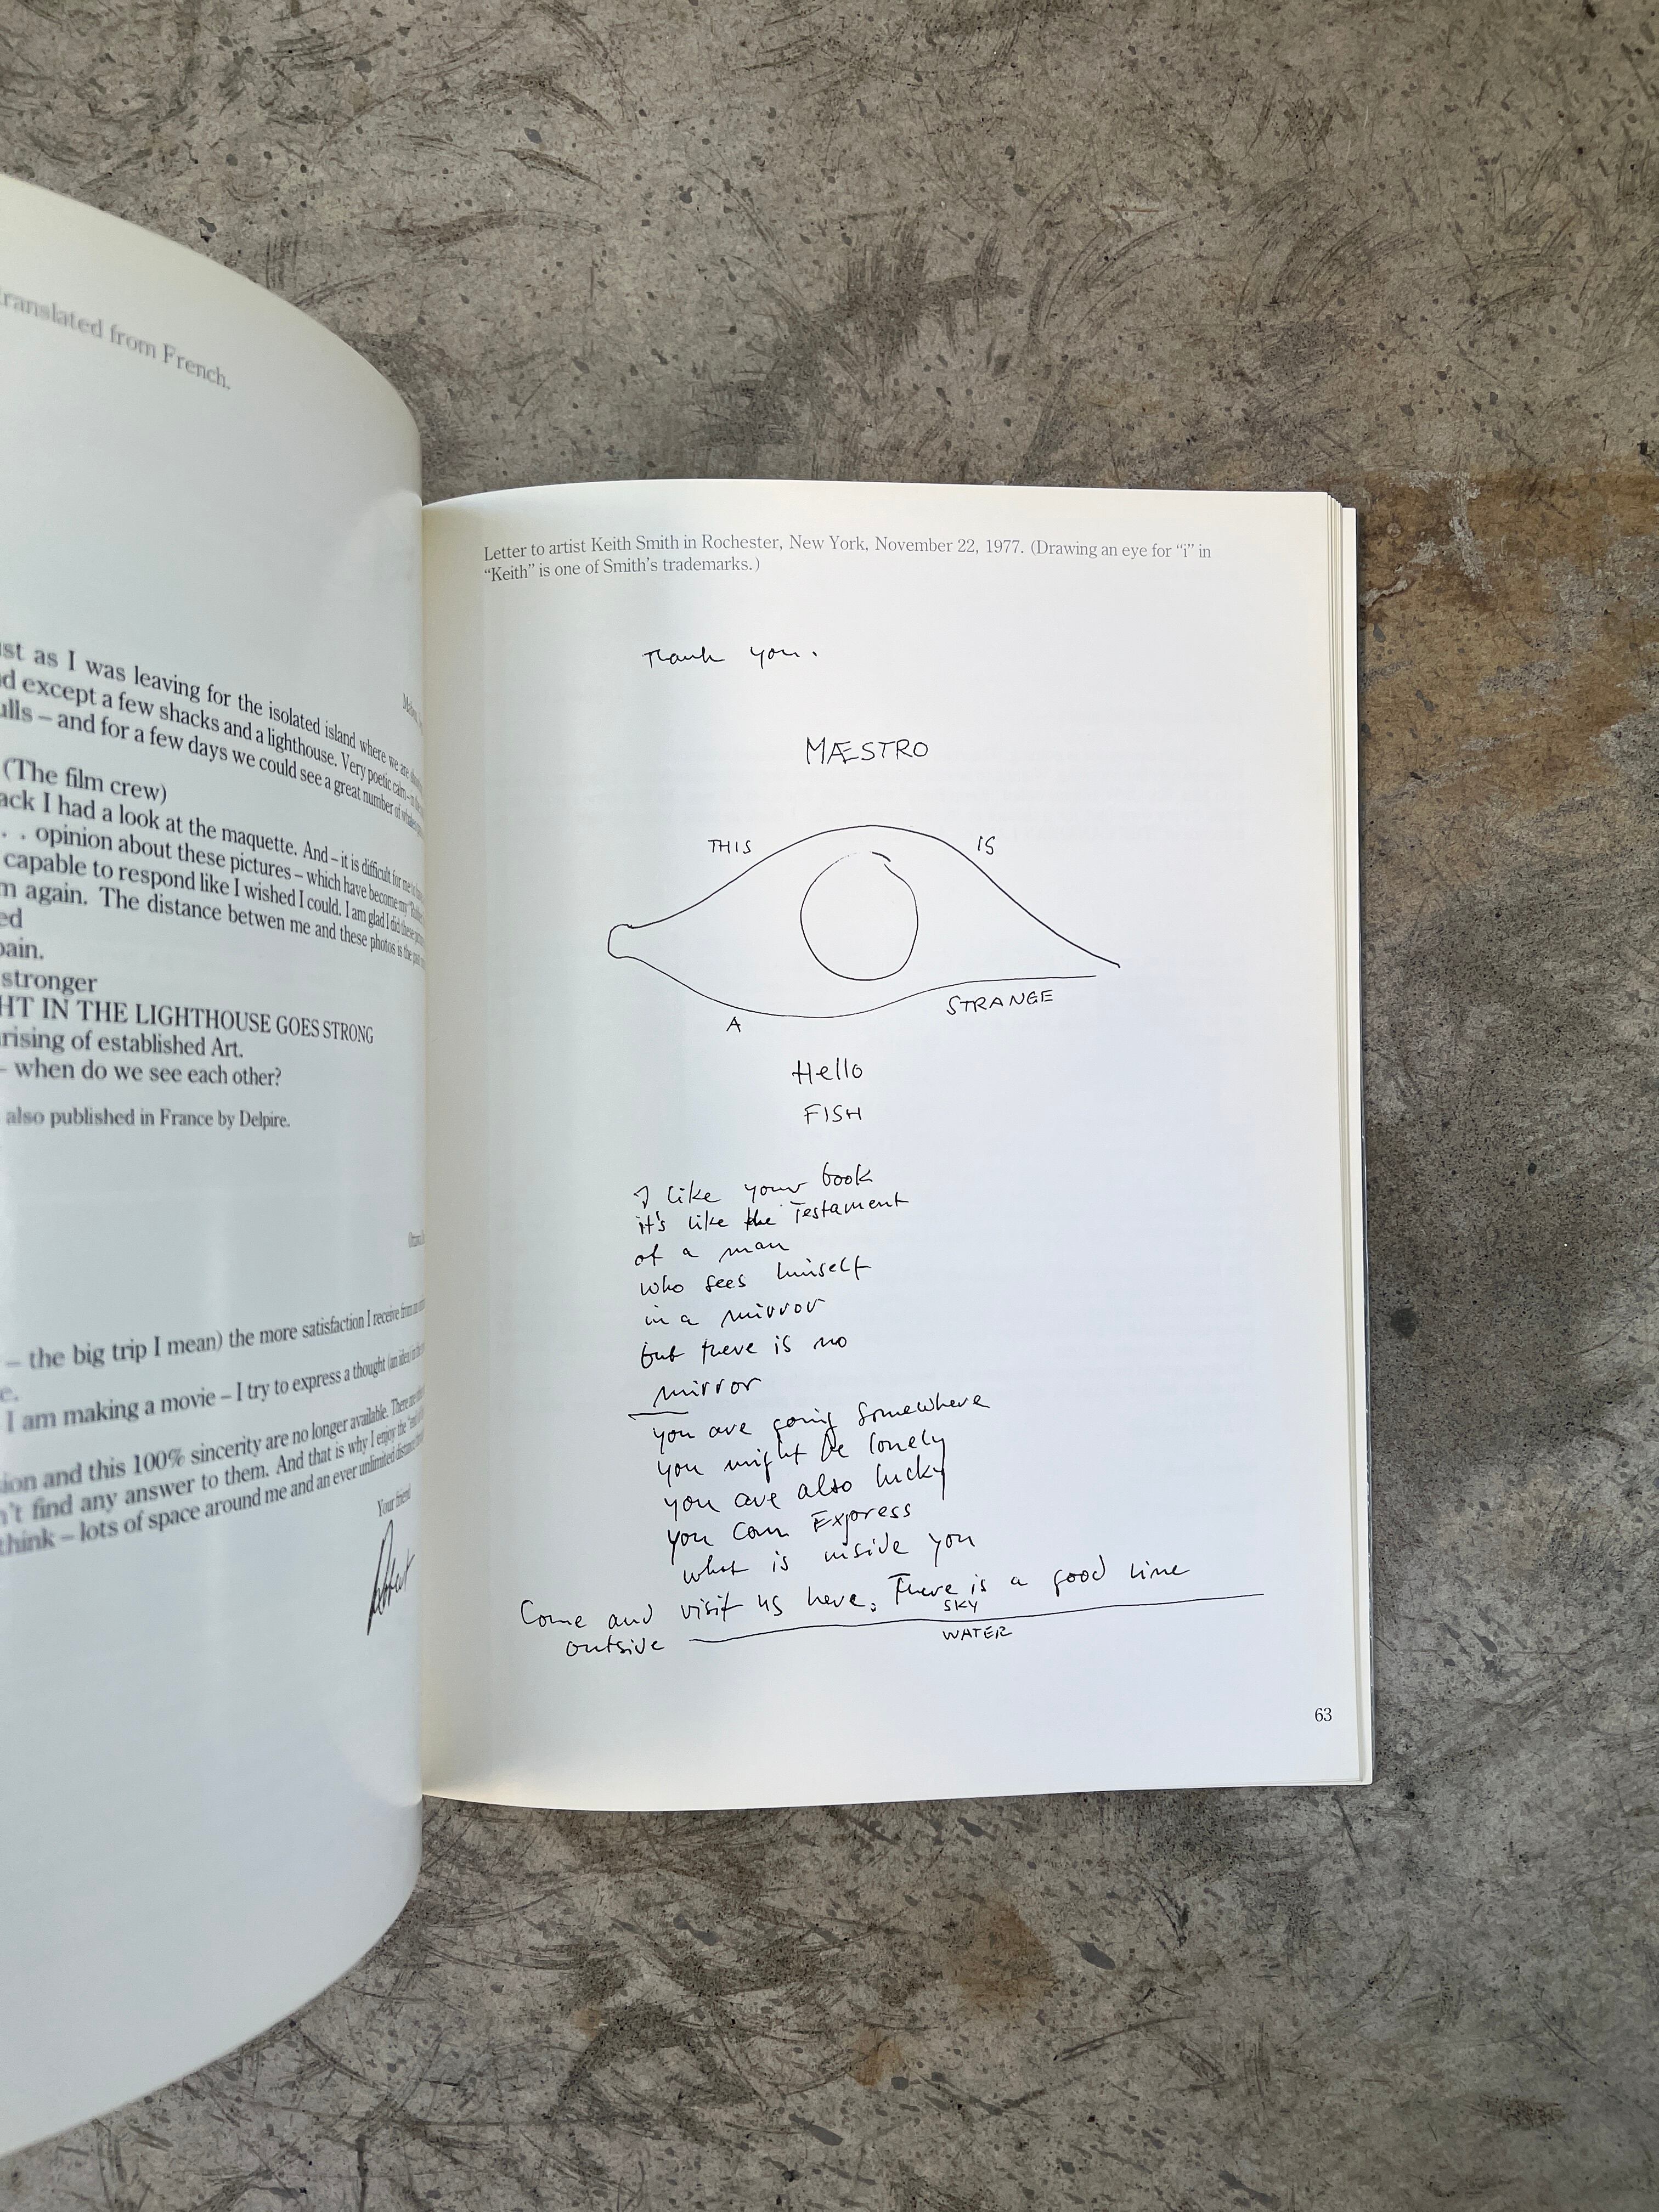 translated from French.
as I was leaving for the isolated island where we are
except a few shacks and a lighthouse. Very poetic calm –
– and for a few days we could see a great number of
(The film crew)
I had a look at the maquette. And – it is difficult for me
. . opinion about these pictures – which have become my
capable to respond like I wished I could. I am glad I did these
again. The distance betwen me and these photos is the
stronger
IN THE LIGHTHOUSE GOES STRONG
of established Art.
– when do we see each other?
also published in France by Delpire.
– the big trip I mean) the more satisfaction I receive from
I am making a movie – I try to express a thought (an idea)
and this 100% sincerity are no longer available. There are
find any answer to them. And that is why I enjoy the
think – lots of space around me and an ever unlimited
Your friend
Robert
Letter to artist Keith Smith in Rochester, New York, November 22, 1977. (Drawing an eye for “i” in
“Keith” is one of Smith’s trademarks.)
Thank you.
MÆSTRO
THIS IS
A STRANGE
Hello
FISH
I like your book
it's like the Testament
of a man
who sees himself
in a mirror
but there is no
mirror
you are going somewhere
you might be lonely
you are also lucky
you can Express
what is inside you
Come and visit us here. There is a good line
outside
SKY
WATER
63